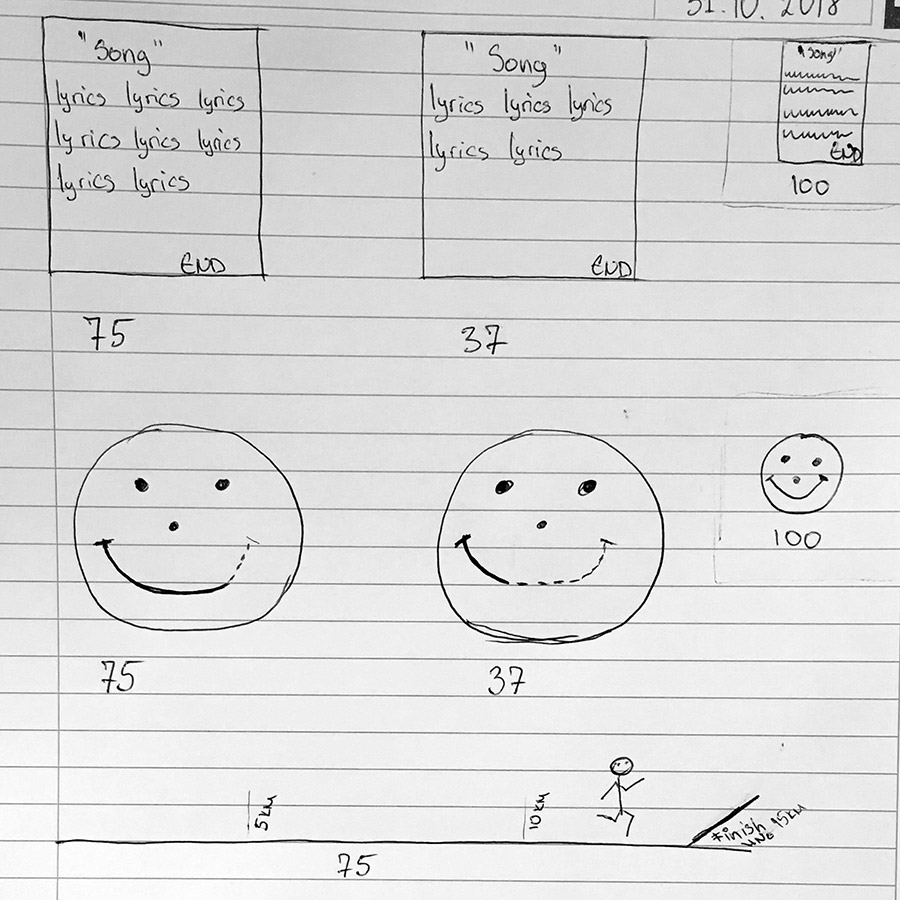 31.10.2018
"Song"
lyrics lyrics lyrics
lyrics lyrics lyrics
lyrics lyrics
END
75
"Song"
lyrics lyrics lyrics
lyrics lyrics
END
37
"Song"
END
100
75
37
100
5 KM
10 KM
Finish 15 KM
LINE
75